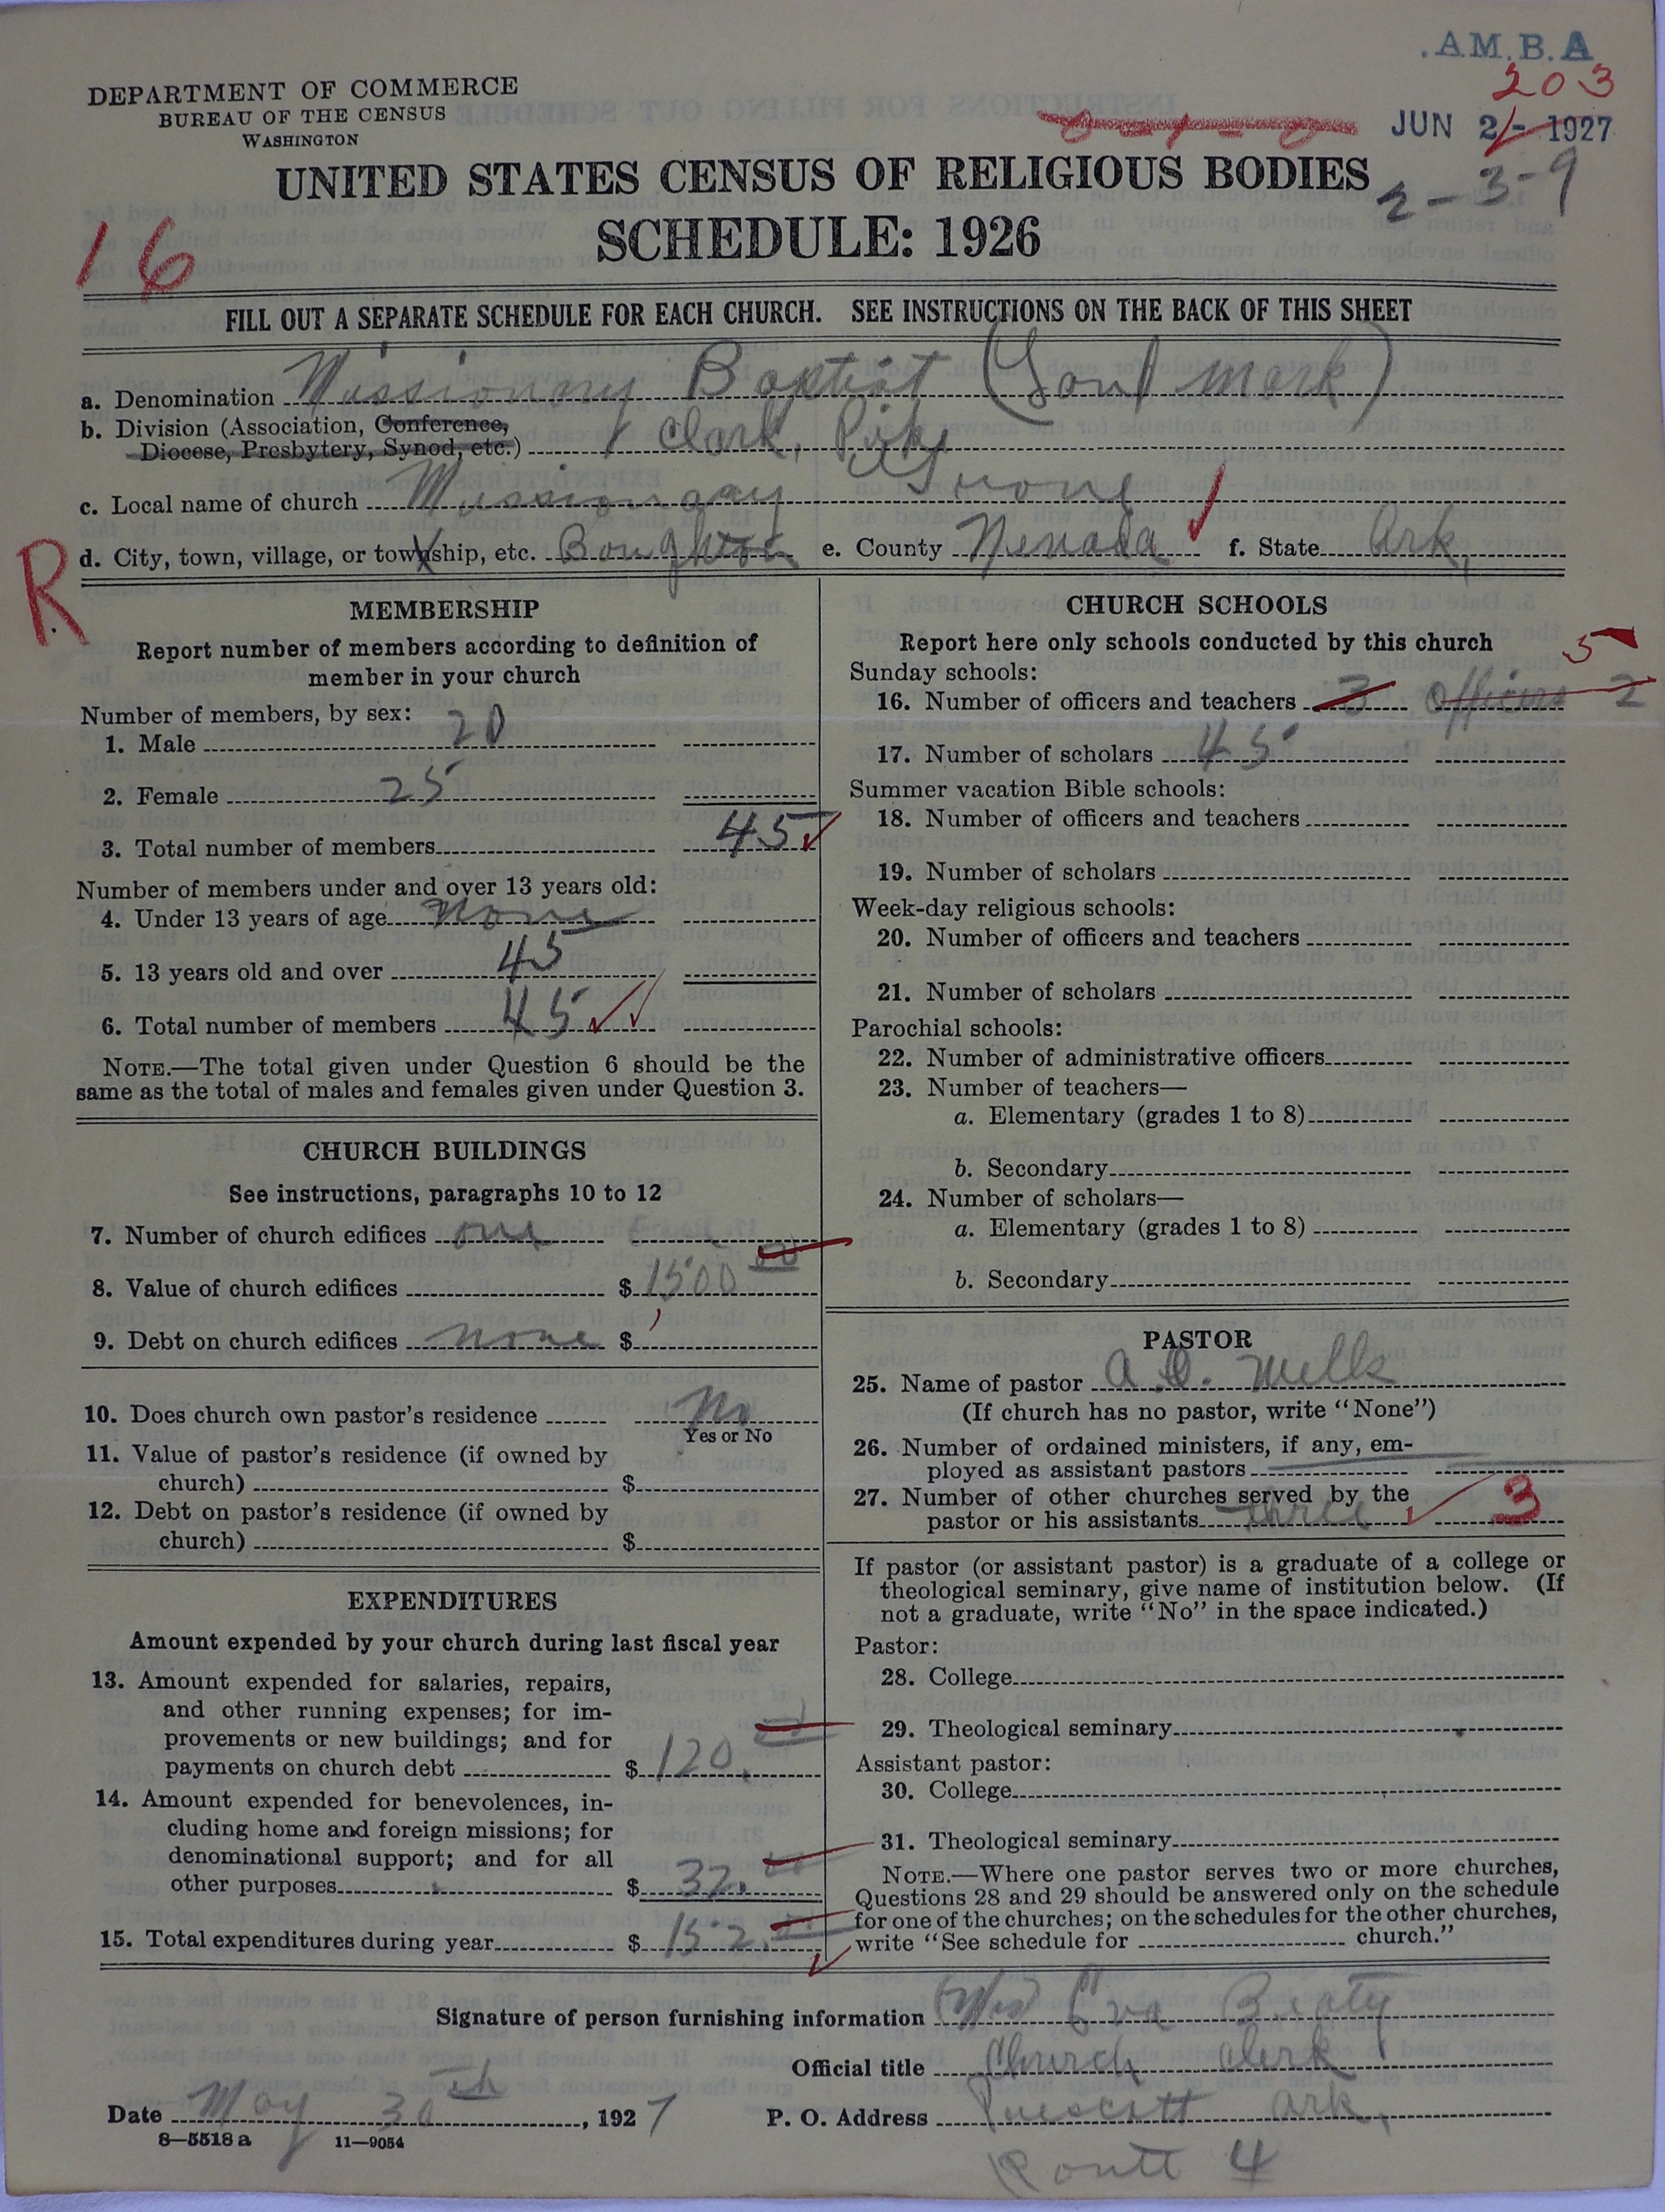 A.M.B.A
203
DEPARTMENT OF COMMERCE
BUREAU OF THE CENSUS
WASHINGTON
JUN 2 - 1927
UNITED STATES CENSUS OF RELIGIOUS BODIES
2-3-9
SCHEDULE: 1926
16
FILL OUT A SEPARATE SCHEDULE FOR EACH CHURCH. SEE INSTRUCTIONS ON THE BACK OF THIS SHEET
a. Denomination Missionary Baptist (Land Mark)
b. Division (Association, Conference,
Diocese, Presbytery, Synod, etc.) Clark, Pike
c. Local name of church Missionary
R
d. City, town, village, or township, etc. Boughton e. County Nevada f. State Ark.
MEMBERSHIP
Report number of members according to definition of
member in your church
Number of members, by sex:
1. Male 20
2. Female 25
3. Total number of members 45
Number of members under and over 13 years old:
4. Under 13 years of age None
5. 13 years old and over 45
6. Total number of members 45
NOTE.—The total given under Question 6 should be the
same as the total of males and females given under Question 3.
CHURCH BUILDINGS
See instructions, paragraphs 10 to 12
7. Number of church edifices one
8. Value of church edifices $ 1500 00
9. Debt on church edifices none $
10. Does church own pastor's residence No
Yes or No
11. Value of pastor's residence (if owned by
church) $
12. Debt on pastor's residence (if owned by
church) $
EXPENDITURES
Amount expended by your church during last fiscal year
13. Amount expended for salaries, repairs,
and other running expenses; for im-
provements or new buildings; and for
payments on church debt $ 120.
14. Amount expended for benevolences, in-
cluding home and foreign missions; for
denominational support; and for all
other purposes $ 32.
15. Total expenditures during year $ 152.
CHURCH SCHOOLS
Report here only schools conducted by this church
Sunday schools:
5
16. Number of officers and teachers 3 Officers 2
17. Number of scholars 45
Summer vacation Bible schools:
18. Number of officers and teachers
19. Number of scholars
Week-day religious schools:
20. Number of officers and teachers
21. Number of scholars
Parochial schools:
22. Number of administrative officers
23. Number of teachers—
a. Elementary (grades 1 to 8)
b. Secondary
24. Number of scholars—
a. Elementary (grades 1 to 8)
b. Secondary
PASTOR
25. Name of pastor
(If church has no pastor, write "None")
26. Number of ordained ministers, if any, em-
ployed as assistant pastors
27. Number of other churches served by the
pastor or his assistants three 3
If pastor (or assistant pastor) is a graduate of a college or
theological seminary, give name of institution below. (If
not a graduate, write "No" in the space indicated.)
Pastor:
28. College
29. Theological seminary
Assistant pastor:
30. College
31. Theological seminary
NOTE.—Where one pastor serves two or more churches,
Questions 28 and 29 should be answered only on the schedule
for one of the churches; on the schedules for the other churches,
write "See schedule for church."
Signature of person furnishing information Mrs Eva Beaty
Official title Church Clerk
Date May 30th, 1927 P. O. Address Prescott Ark.
8—5518 a 11—9054
Routt 4